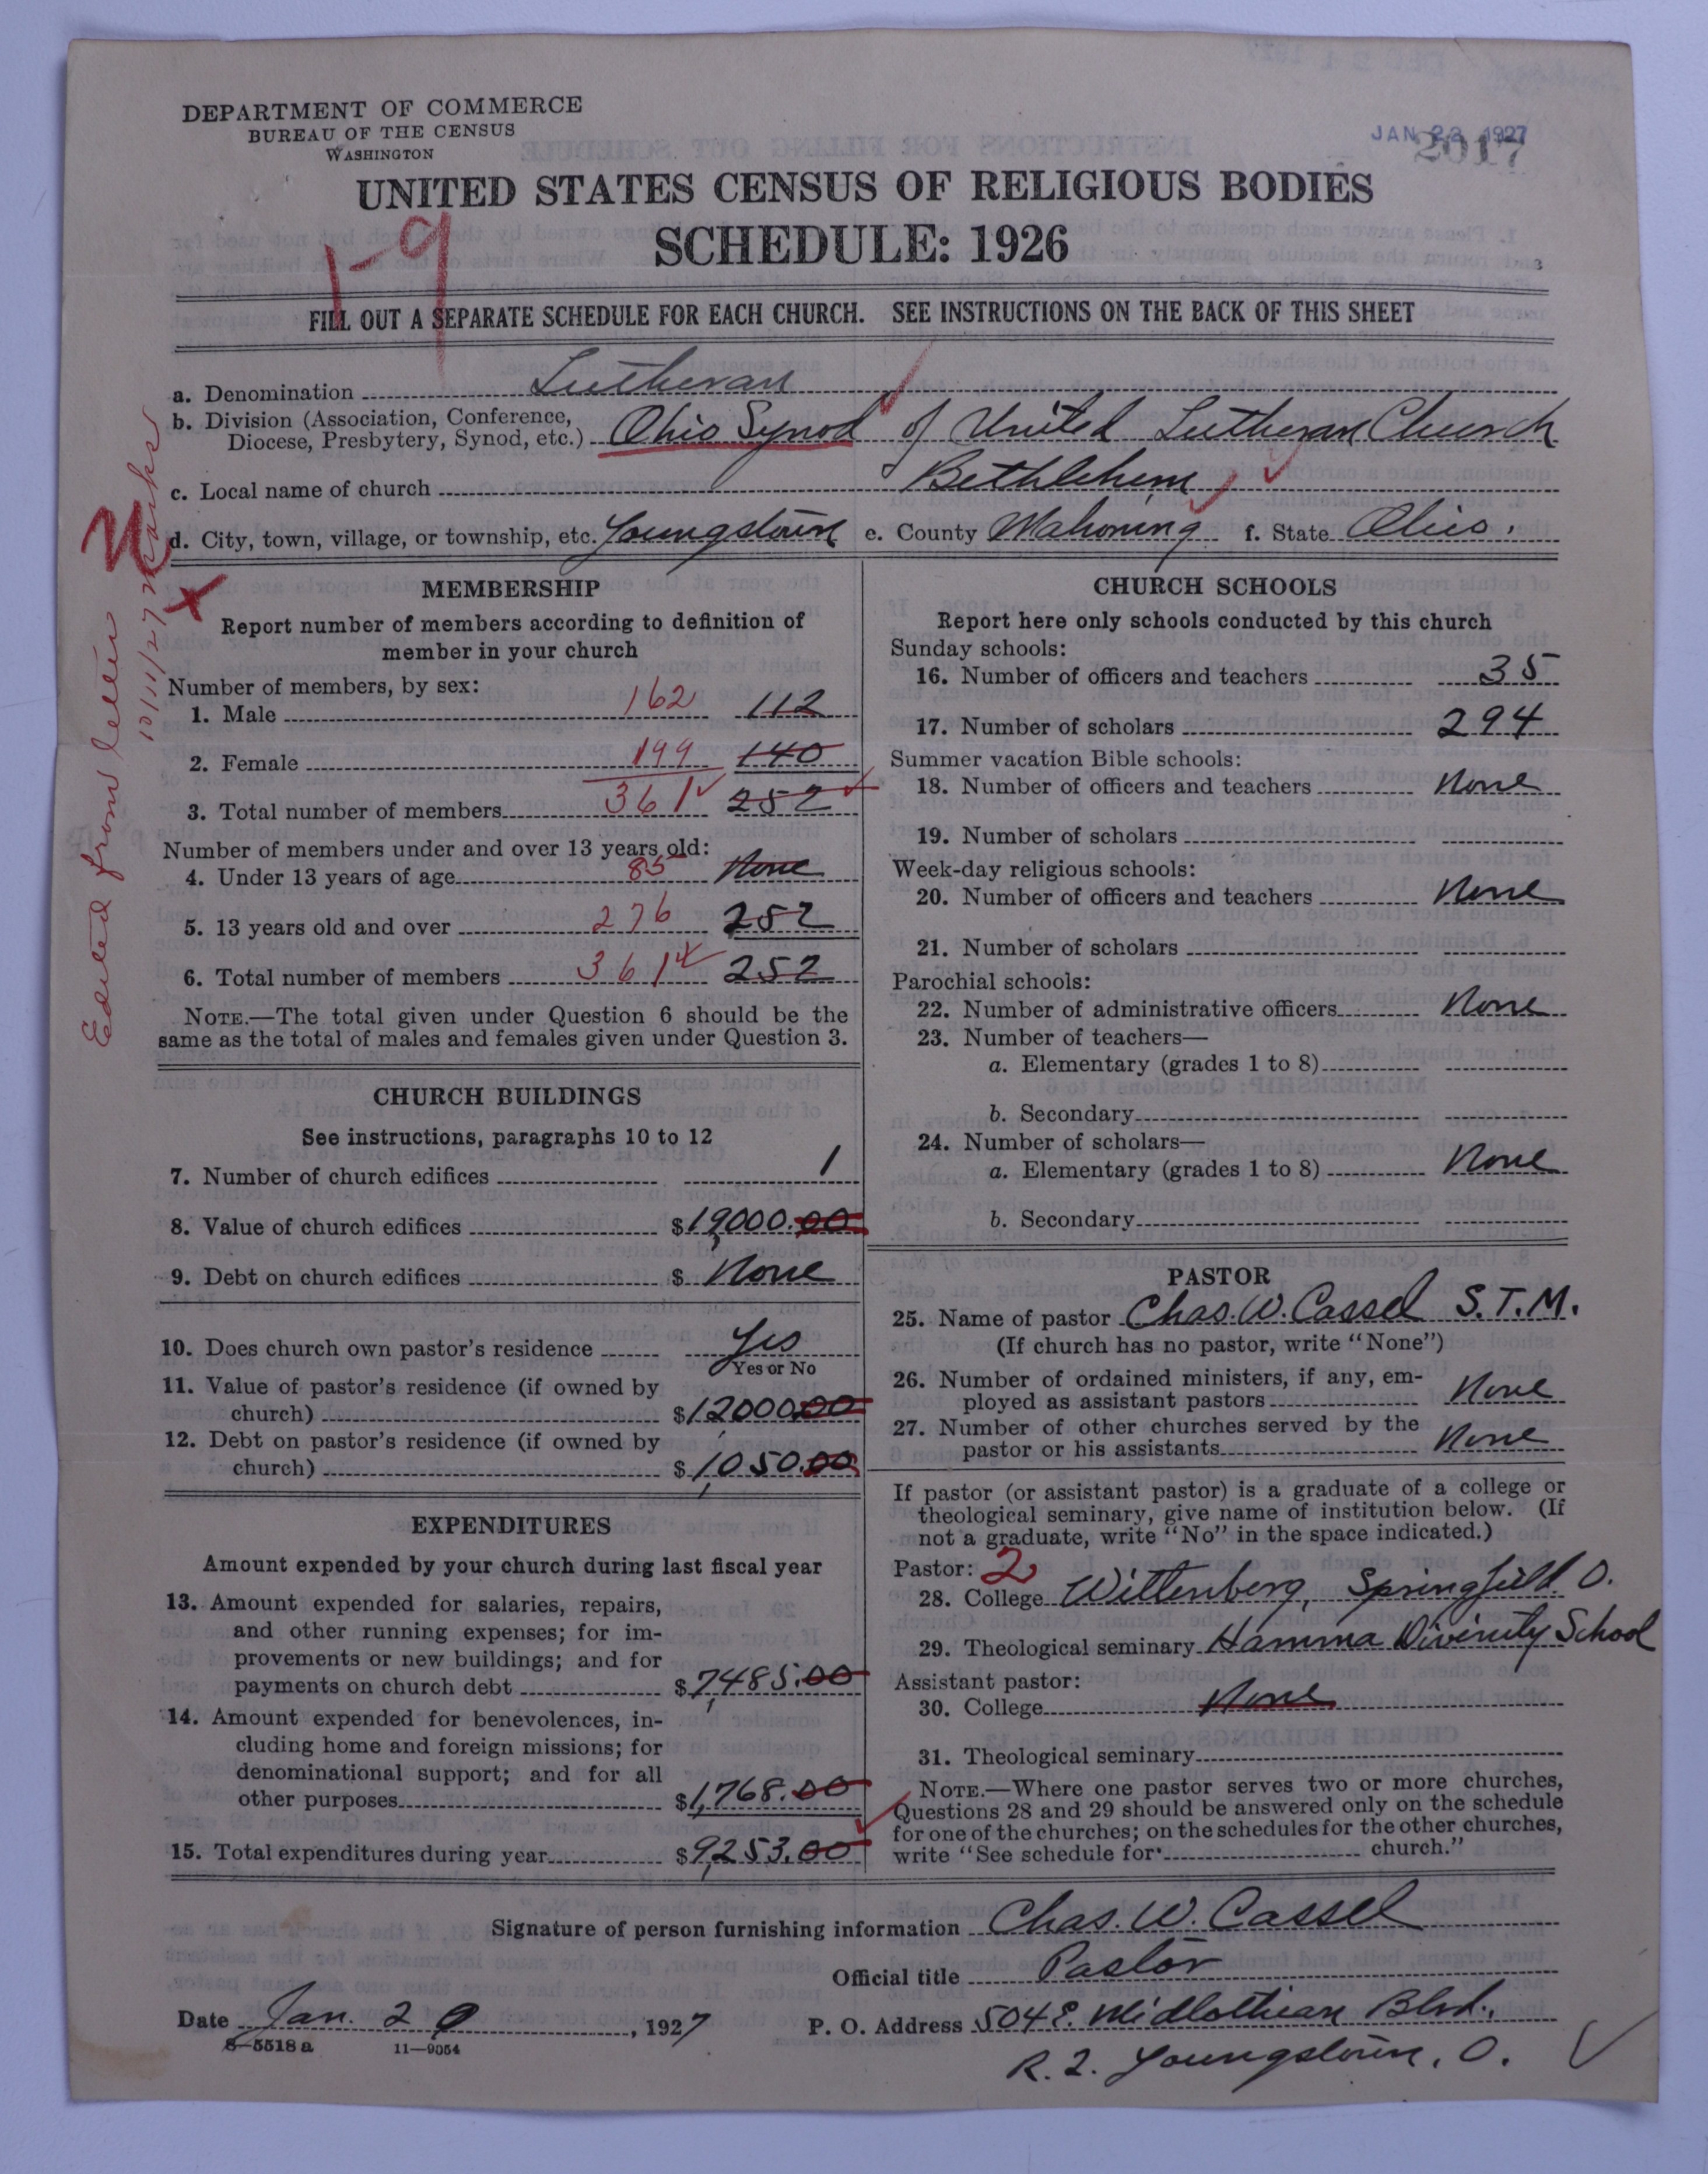 DEPARTMENT OF COMMERCE
BUREAU OF THE CENSUS
WASHINGTON
JAN 22 1927
2017
UNITED STATES CENSUS OF RELIGIOUS BODIES
SCHEDULE: 1926
1-9
3
FILL OUT A SEPARATE SCHEDULE FOR EACH CHURCH. SEE INSTRUCTIONS ON THE BACK OF THIS SHEET
a. Denomination Lutheran
b. Division (Association, Conference,
Diocese, Presbytery, Synod, etc.) Ohio Synod of United Lutheran Church
c. Local name of church Bethlehem
d. City, town, village, or township, etc. Youngstown e. County Mahoning f. State Ohio.
Edited from letter
10/11/27
MEMBERSHIP
Report number of members according to definition of
member in your church
Number of members, by sex:
1. Male 162 112
2. Female 199 140
3. Total number of members 361 252
Number of members under and over 13 years old:
4. Under 13 years of age 85 None
5. 13 years old and over 276 252
6. Total number of members 361 252
NOTE.—The total given under Question 6 should be the
same as the total of males and females given under Question 3.
CHURCH BUILDINGS
See instructions, paragraphs 10 to 12
7. Number of church edifices 1
8. Value of church edifices $19,000.00
9. Debt on church edifices $ None
10. Does church own pastor's residence Yes
Yes or No
11. Value of pastor's residence (if owned by
church) $12,000.00
12. Debt on pastor's residence (if owned by
church) $1,050.00
EXPENDITURES
Amount expended by your church during last fiscal year
13. Amount expended for salaries, repairs,
and other running expenses; for im-
provements or new buildings; and for
payments on church debt $7,485.00
14. Amount expended for benevolences, in-
cluding home and foreign missions; for
denominational support; and for all
other purposes $1,768.00
15. Total expenditures during year $9,253.00
CHURCH SCHOOLS
Report here only schools conducted by this church
Sunday schools:
16. Number of officers and teachers 35
17. Number of scholars 294
Summer vacation Bible schools:
18. Number of officers and teachers None
19. Number of scholars
Week-day religious schools:
20. Number of officers and teachers None
21. Number of scholars
Parochial schools:
22. Number of administrative officers None
23. Number of teachers—
a. Elementary (grades 1 to 8)
b. Secondary
24. Number of scholars—
a. Elementary (grades 1 to 8) None
b. Secondary
PASTOR
25. Name of pastor Chas. W. Cassel S.T.M.
(If church has no pastor, write "None")
26. Number of ordained ministers, if any, em-
ployed as assistant pastors None
27. Number of other churches served by the
pastor or his assistants None
If pastor (or assistant pastor) is a graduate of a college or
theological seminary, give name of institution below. (If
not a graduate, write "No" in the space indicated.)
Pastor: 2
28. College Wittenberg, Springfield. O.
29. Theological seminary Hamma Divinity School
Assistant pastor:
30. College None
31. Theological seminary
NOTE.—Where one pastor serves two or more churches,
Questions 28 and 29 should be answered only on the schedule
for one of the churches; on the schedules for the other churches,
write "See schedule for church."
Signature of person furnishing information Chas. W. Cassel
Official title Pastor
Date Jan. 20, 1927 P. O. Address 504 E. Midlothian Blvd.,
8-5518 a 11-9054
R. 2. Youngstown, O.